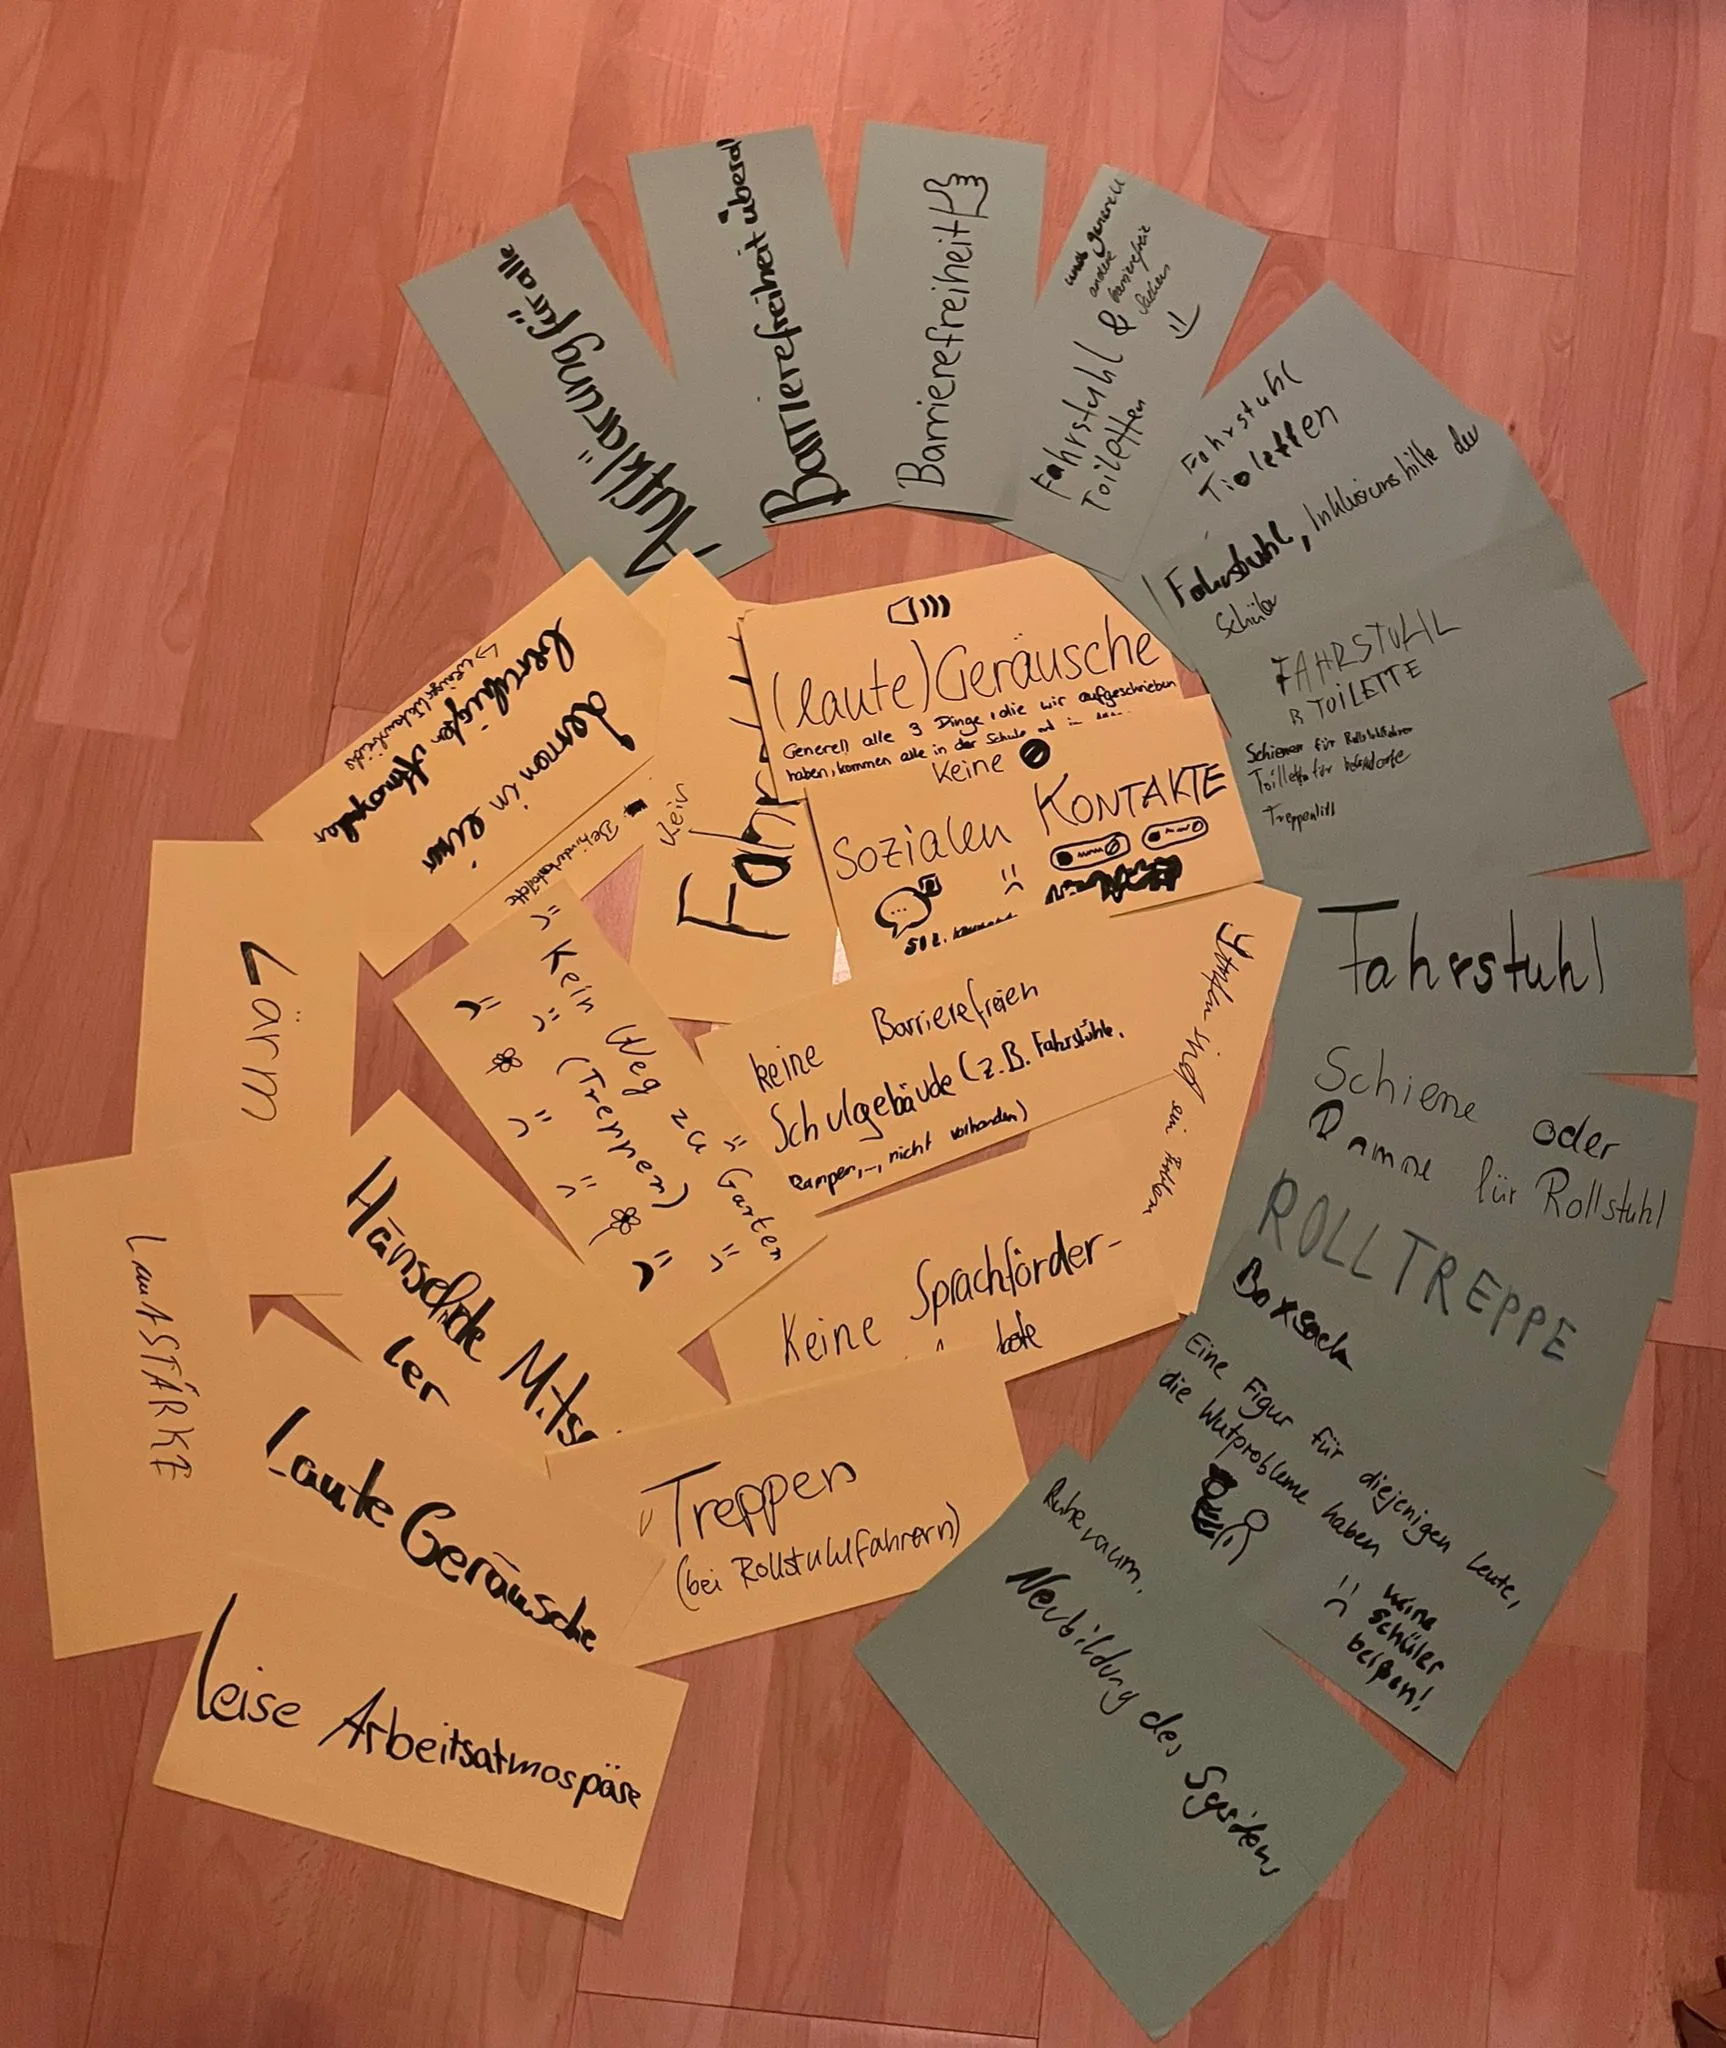 Aufklärung für alle
Barrierefreiheit überall
Barrierefreiheit
Fahrstuhl &
Toiletten
und generell
andere
barrierefreie
Sachen
Fahrstuhl
Tioletten
Fahrstuhl, Inklusionshilfe der
Schüler
FAHRSTUHL
B TOILETTE
Schienen für Rollstuhlfahrer
Treppenlift
Fahrstuhl
Schiene oder
für Rollstuhl
ROLLTREPPE
Boxsack
Eine Figur für diejenigen Leute,
die Wutprobleme haben
keine
schüler
beißen!
Ruheraum,
Neubildung des Systems
(laute) Geräusche
Generell alle 3 Dinge, die wir aufgeschrieben
haben, kommen alle in der Schule
Keine
SOZIALEN KONTAKTE
Kein
lernen in einer
Behindertentoilette
keine Barrierefreien
Schulgebäude (z.B. Fahrstühle,
Rampen, ..., nicht vorhanden)
sind ein Problem
Kein Weg zu Garten
(Treppen)
Keine Sprachförder-
bote
Lärm
Hänselnde Mits
ler
LautSTÄRKE
Laute Geräusche
Treppen
(bei Rollstuhlfahrern)
Leise Arbeitsatmospäre